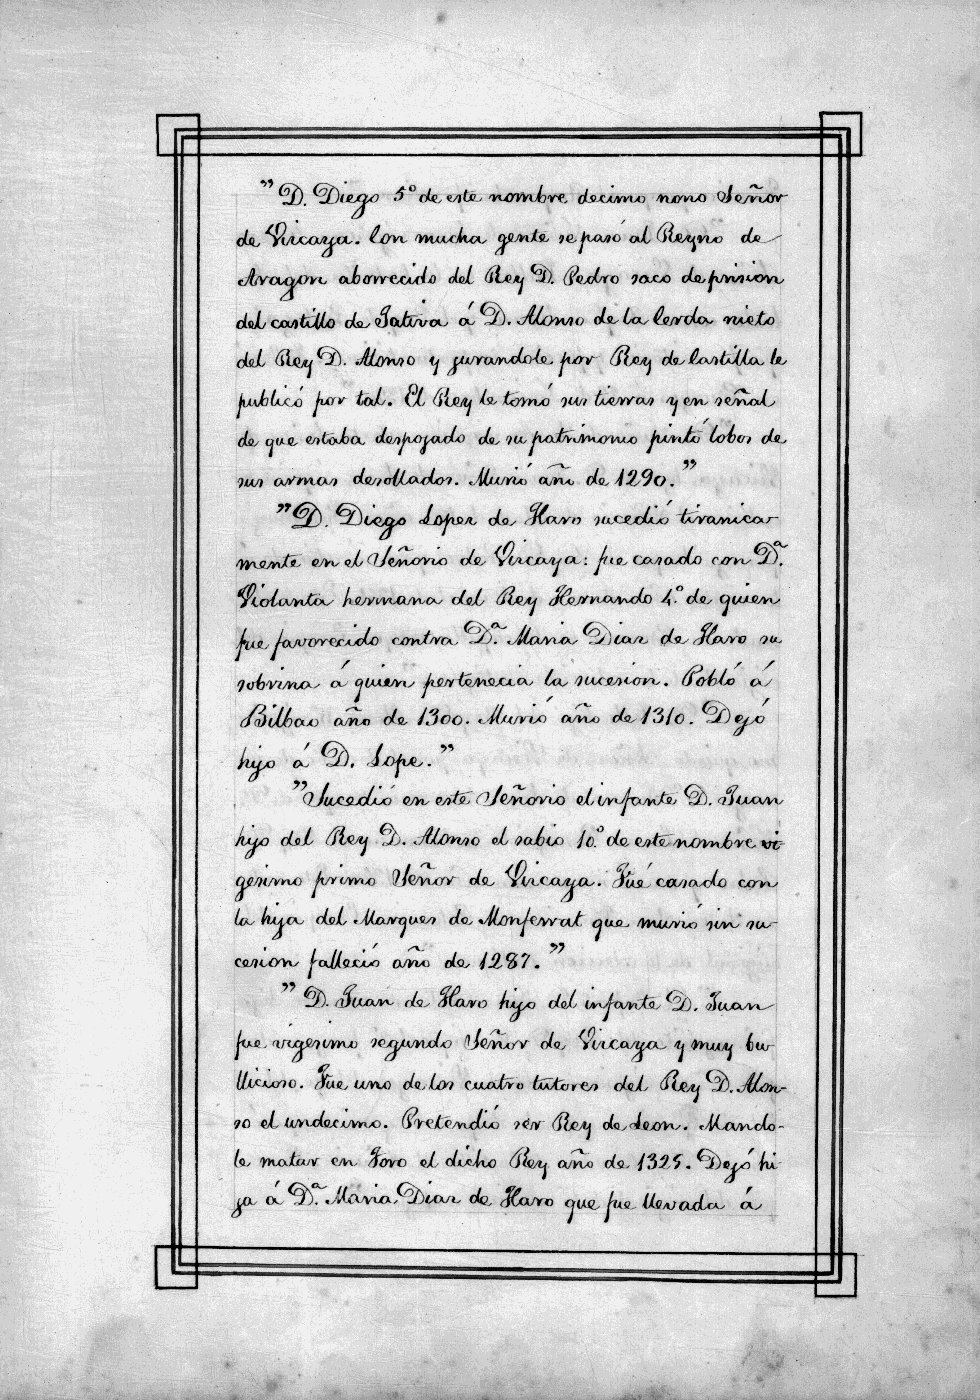 " D. Diego 5º de este nombre decimo nono Señor
de Vizcaya. Con mucha gente se pasó al Reyno de
Aragon aborrecido del Rey D. Pedro saco de prision
del castillo de Jativa á D. Alonso de la Cerda nieto
del Rey D. Alonso y jurandole por Rey de Castilla le
publicó por tal. El Rey le tomó sus tierras y en señal
de que estaba despojado de su patrimonio pintó lobos de
sus armas desollados. Murió año de 1290."
"D. Diego Lopez de Haro sucedió tiranica-
mente en el Señorio de Vizcaya: fue casado con Dª.
Violanta hermana del Rey Hernando 4.º de quien
fue favorecido contra Dª. Maria Diaz de Haro su
sobrina á quien pertenecia la sucesion. Pobló á
Bilbao año de 1300. Murió año de 1310. Dejó
hijo á D. Lope."
"Sucedió en este Señorio el infante D. Juan
hijo del Rey D. Alonso el sabio 10.º de este nombre vi-
gesimo primo Señor de Vizcaya. Fué casado con
la hija del Marques de Monferrat que murió sin su-
cesion falleció año de 1287."
" D. Juan de Haro hijo del infante D. Juan
fue vigesimo segundo Señor de Vizcaya y muy bu-
llicioso. Fue uno de los cuatro tutores del Rey D. Alon-
so el undecimo. Pretendió ser Rey de Leon. Mando-
le matar en Toro el dicho Rey año de 1325. Dejó hi-
ja á Dª. Maria Diaz de Haro que fue llevada á